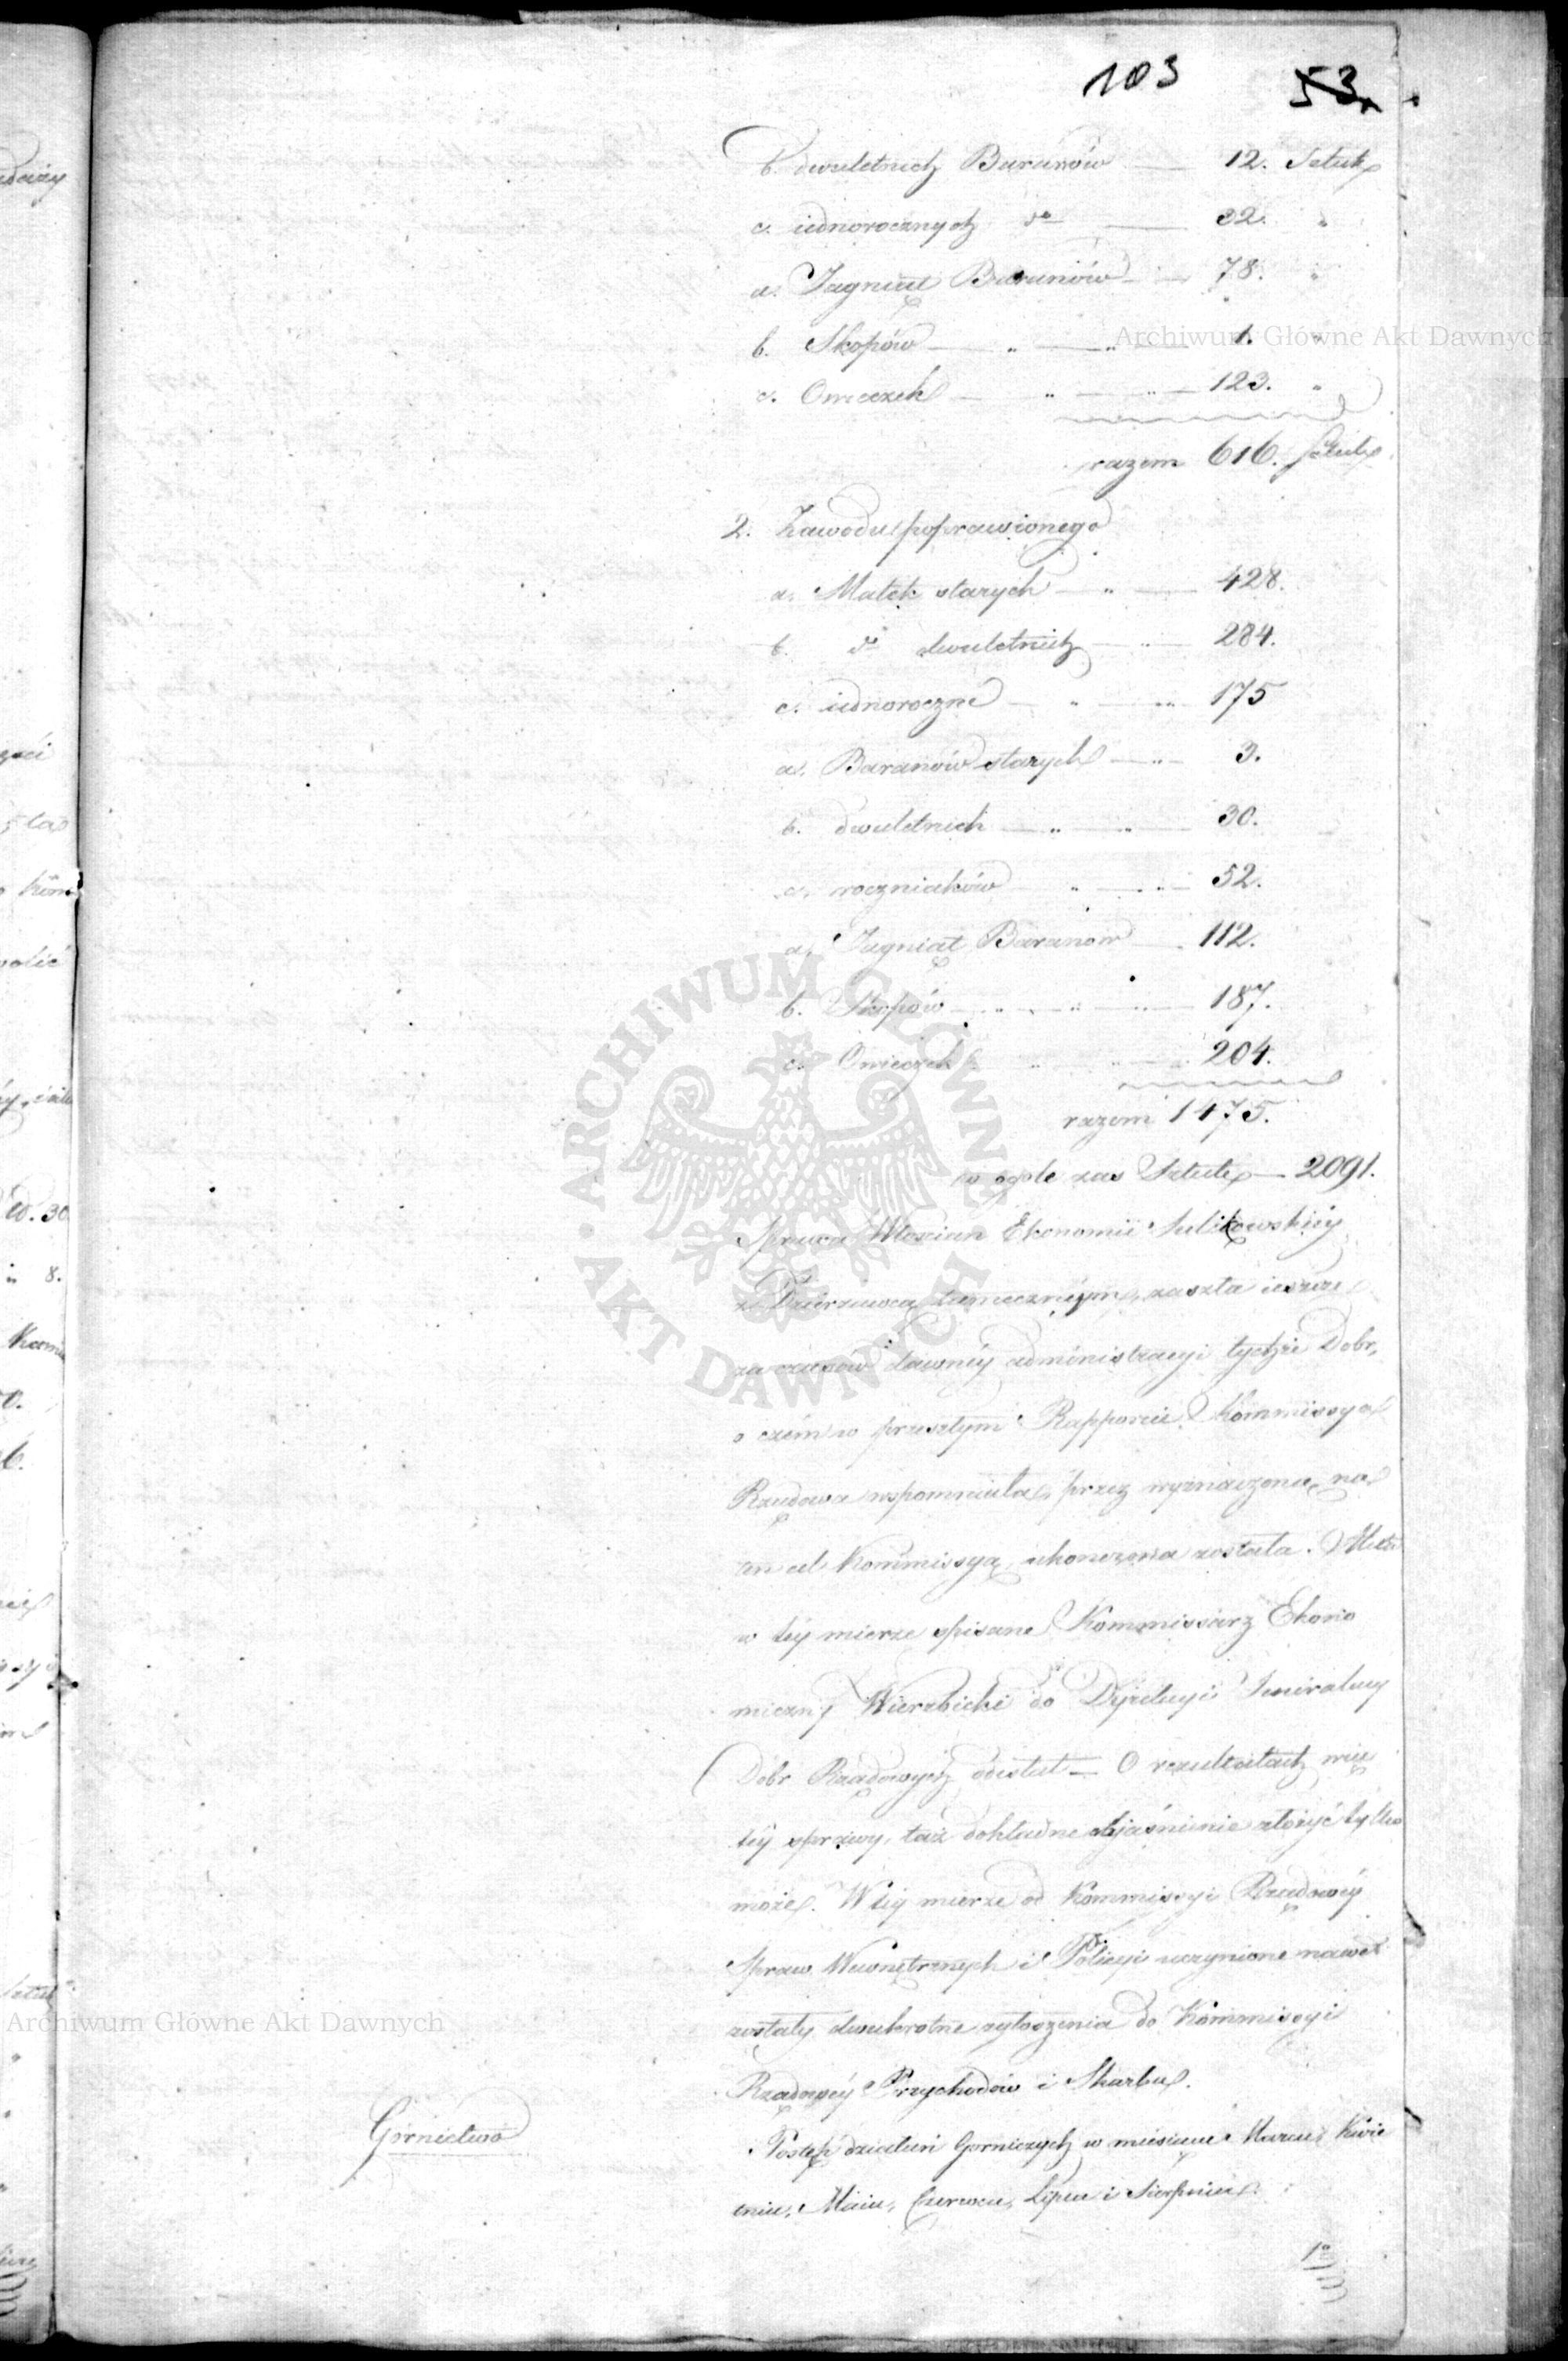 103 53
b. dwuletnich Baranów — 12. Sztuk
c. iednorocznych do — 32. "
a. Jagniąt Baranów — 78. "
b. Skopów — " — " — 1. "
c. Owieczek — " — " — 123. "
razem 616. sztuk
2. Zawodu poprawionego
a. Matek starych — " — 428.
b. do dwuletnich — " — 284.
c. iednoroczne — " — " 175
a. Baranów starych — " — 3.
b. dwuletnich — " — " — 30.
c. roczniaków — " — " — 52.
a. Jagniąt Baranów — 112.
b. Skopów — " — " — " — 187.
c. Owieczek " — " — 204.
razem 1475.
w ogole zas Sztuk — 2091.
Sprawa Włoscian Ekonomii
z Dzierzawcą tamecznym, zaszła ieszcze
za czasów dawnéy administracyi tychże Dobr,
o czém w przeszłym Rapporcie Kommissya
Rządowa wspomniała, przez wyznaczoną na
ten cel Kommissyą, ukonczona została. Akta
w téy mierze spisane Kommissarz Ekono
miczny Wierzbicki do Dyrekcyi Jeneralney
Dobr Rządowych odesłał — O rezultatach więc
téy sprawy, taż dokładne objaśnienie złożyć tylko
może. W téy mierze od Kommissyi Rządowéy
Spraw Wewnętrznych i Policyi uczynione nawet
zostały dwukrotne zgłoszenia do Kommissyi
Rządowéy Przychodów i Skarbu.
Górnictwo
Postęp działań Gorniczych w miesiącu Marcu, Kwie
tniu, Maiu, Czerwcu, Lipcu i Sierpniu.
1o
Archiwum Główne Akt Dawnych
Archiwum Główne Akt Dawnych
· ARCHIWUM GŁÓWNE · AKT DAWNYCH